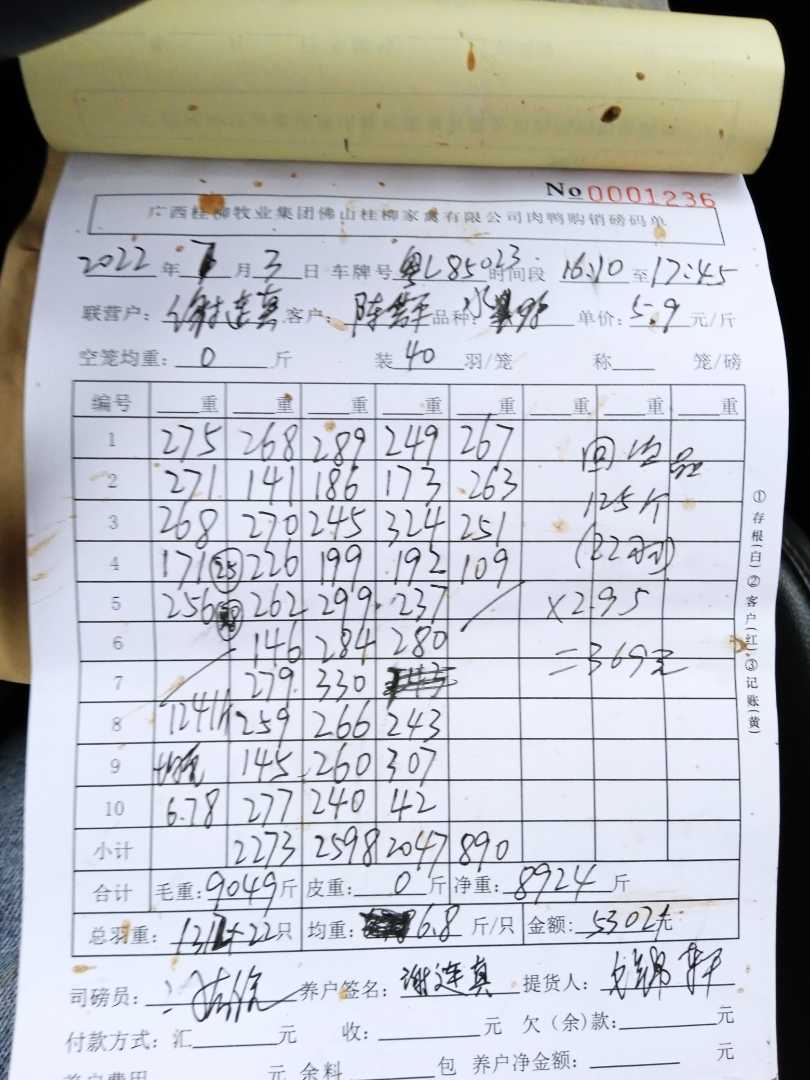 No 0001236
广西桂柳牧业集团佛山桂柳家禽有限公司肉鸭购销磅码单
2022 年 月 3 日 车牌号 粤L85023 时间段 16:10 至 17:45
联营户: 谢连真 客户: 陈 品种: 单价: 5.9 元/斤
空笼均重: 0 斤 装 40 羽/笼 称 笼/磅
编号 重 重 重 重 重 重 重 重
1 275 268 289 249 267
2 271 141 186 173 263
3 268 270 245 324 251
4 171 25 226 199 192 109
5 256 262 299 237
6 146 284 280
7 279 330
8 1241斤 259 266 243
9 均重 145 260 307
10 6.78 277 240 42
小计 2273 2598 2047 890
回收品
125斤
(22只)
×2.95
=369元
合计 毛重: 9049 斤 皮重: 0 斤 净重: 8924 斤
总羽重: +22 只 均重: 6.8 斤/只 金额: 5302元
司磅员: 养户签名: 谢连真 提货人:
付款方式: 汇 元 收: 元 欠(余)款: 元
养户费用 元 余料 包 养户净金额: 元
①存根(白)②客户(红)③记账(黄)